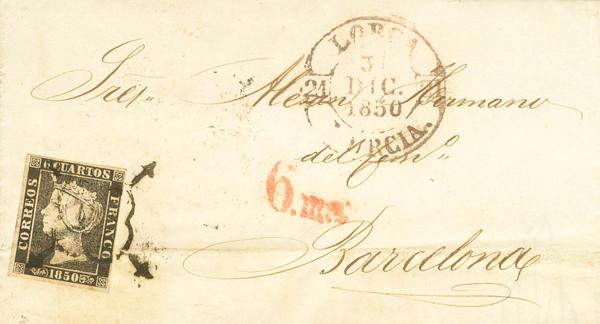 LORCA
31
DIC.
1850
24
MURCIA.
Sres. Hermano
del Com.o
6.ms
Barcelona
6 CUARTOS
CORREOS
FRANCO
1850